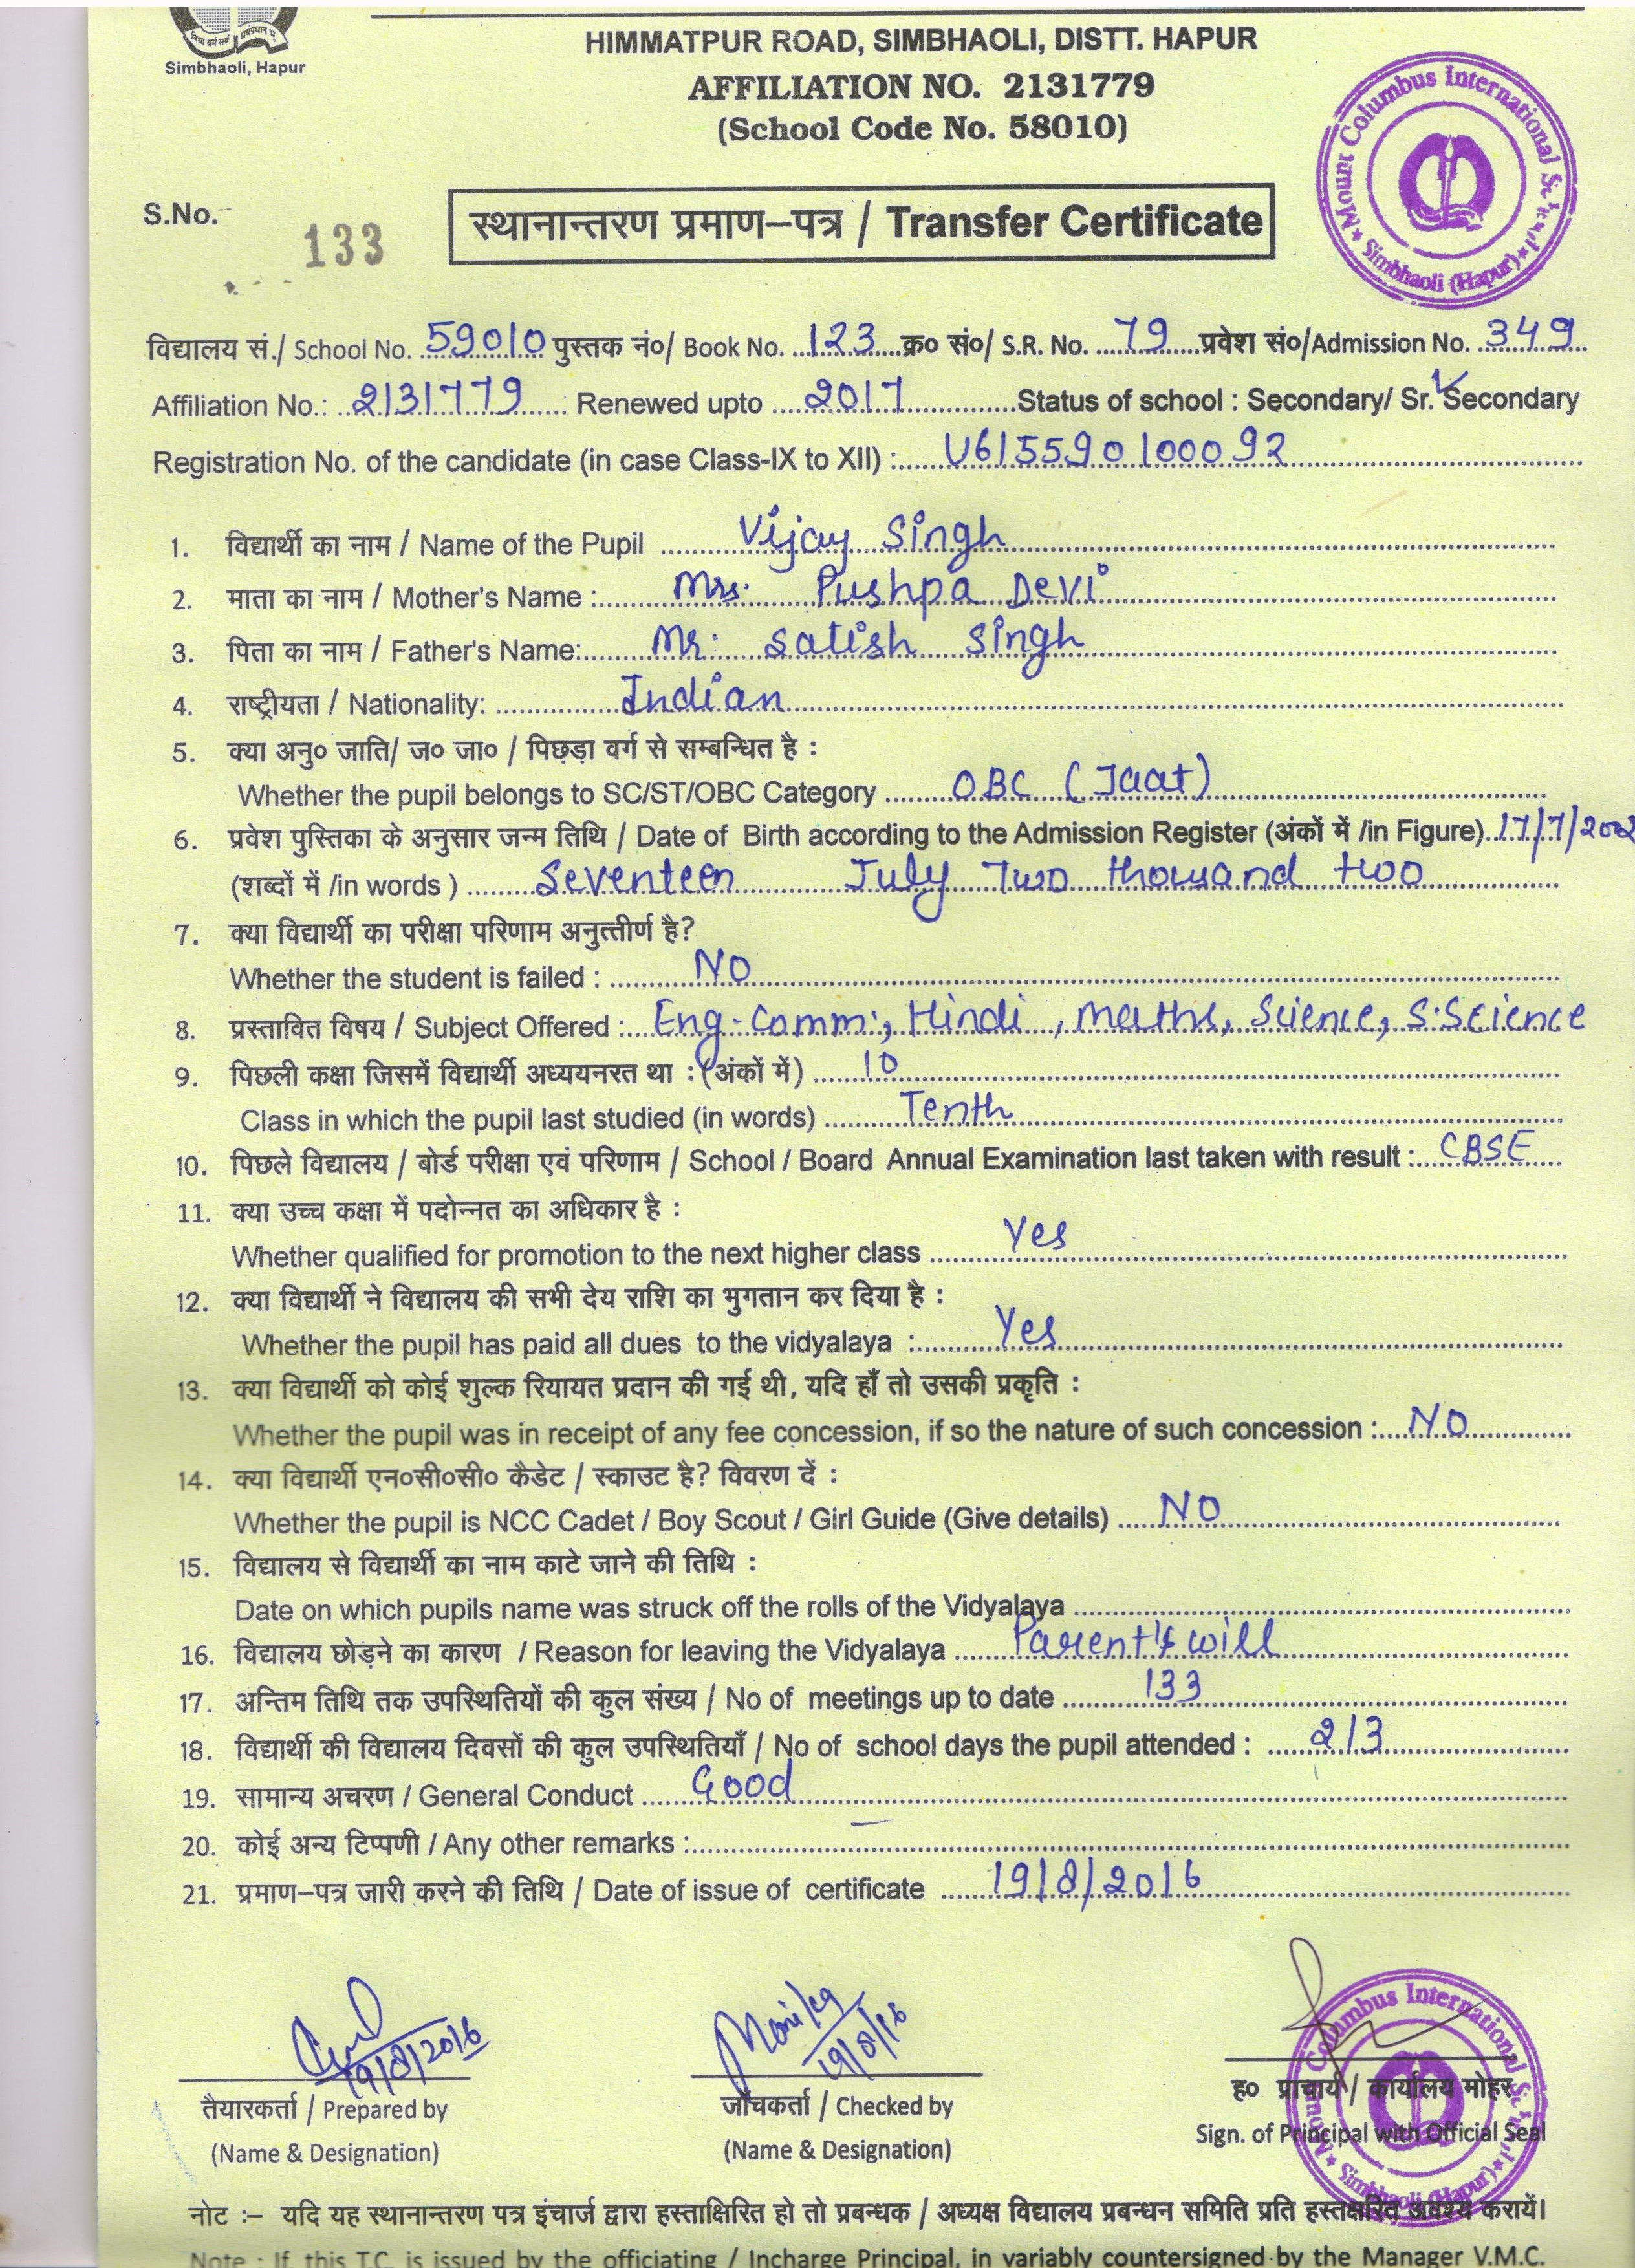 Simbhaoli, Hapur
HIMMATPUR ROAD, SIMBHAOLI, DISTT. HAPUR
AFFILIATION NO. 2131779
(School Code No. 58010)
Mount Columbus International School
Simbhaoli (Hapur)
S.No. 133
स्थानान्तरण प्रमाण–पत्र / Transfer Certificate
विद्यालय सं./ School No. 59010 पुस्तक नं०/ Book No. 123 क्र० सं०/ S.R. No. 79 प्रवेश सं०/Admission No. 349
Affiliation No.: 2131779 Renewed upto 2017 Status of school : Secondary/ Sr. Secondary
Registration No. of the candidate (in case Class-IX to XII) : U615590100092
1. विद्यार्थी का नाम / Name of the Pupil Vijay Singh
2. माता का नाम / Mother's Name : Mrs. Pushpa Devi
3. पिता का नाम / Father's Name: Mr. Satish Singh
4. राष्ट्रीयता / Nationality: Indian
5. क्या अनु० जाति/ ज० जा० / पिछड़ा वर्ग से सम्बन्धित है :
Whether the pupil belongs to SC/ST/OBC Category OBC (Jaat)
6. प्रवेश पुस्तिका के अनुसार जन्म तिथि / Date of Birth according to the Admission Register (अंकों में /in Figure) 17/7/2002
(शब्दों में /in words ) Seventeen July Two thousand two
7. क्या विद्यार्थी का परीक्षा परिणाम अनुत्तीर्ण है?
Whether the student is failed : NO
8. प्रस्तावित विषय / Subject Offered : Eng-Comm:, Hindi, Maths, Science, S.Science
9. पिछली कक्षा जिसमें विद्यार्थी अध्ययनरत था : (अंकों में) 10
Class in which the pupil last studied (in words) Tenth
10. पिछले विद्यालय / बोर्ड परीक्षा एवं परिणाम / School / Board Annual Examination last taken with result : CBSE
11. क्या उच्च कक्षा में पदोन्नत का अधिकार है :
Whether qualified for promotion to the next higher class Yes
12. क्या विद्यार्थी ने विद्यालय की सभी देय राशि का भुगतान कर दिया है :
Whether the pupil has paid all dues to the vidyalaya : Yes
13. क्या विद्यार्थी को कोई शुल्क रियायत प्रदान की गई थी, यदि हाँ तो उसकी प्रकृति :
Whether the pupil was in receipt of any fee concession, if so the nature of such concession : NO
14. क्या विद्यार्थी एन०सी०सी० कैडेट / स्काउट है? विवरण दें :
Whether the pupil is NCC Cadet / Boy Scout / Girl Guide (Give details) NO
15. विद्यालय से विद्यार्थी का नाम काटे जाने की तिथि :
Date on which pupils name was struck off the rolls of the Vidyalaya
16. विद्यालय छोड़ने का कारण / Reason for leaving the Vidyalaya Parent's will
17. अन्तिम तिथि तक उपस्थितियों की कुल संख्य / No of meetings up to date 133
18. विद्यार्थी की विद्यालय दिवसों की कुल उपस्थितियाँ / No of school days the pupil attended : 213
19. सामान्य अचरण / General Conduct Good
20. कोई अन्य टिप्पणी / Any other remarks :
21. प्रमाण–पत्र जारी करने की तिथि / Date of issue of certificate 19/8/2016
19/8/2016 Monika 19/8/16
तैयारकर्ता / Prepared by जाँचकर्ता / Checked by ह० प्राचार्य / कार्यालय मोहर
(Name & Designation) (Name & Designation) Sign. of Principal with Official Seal
Mount Columbus International School
Simbhaoli (Hapur)
नोट :– यदि यह स्थानान्तरण पत्र इंचार्ज द्वारा हस्ताक्षिरित हो तो प्रबन्धक / अध्यक्ष विद्यालय प्रबन्धन समिति प्रति हस्तक्षरित अवश्य करायें।
Note : If this T.C. is issued by the officiating / Incharge Principal, in variably countersigned by the Manager V.M.C.